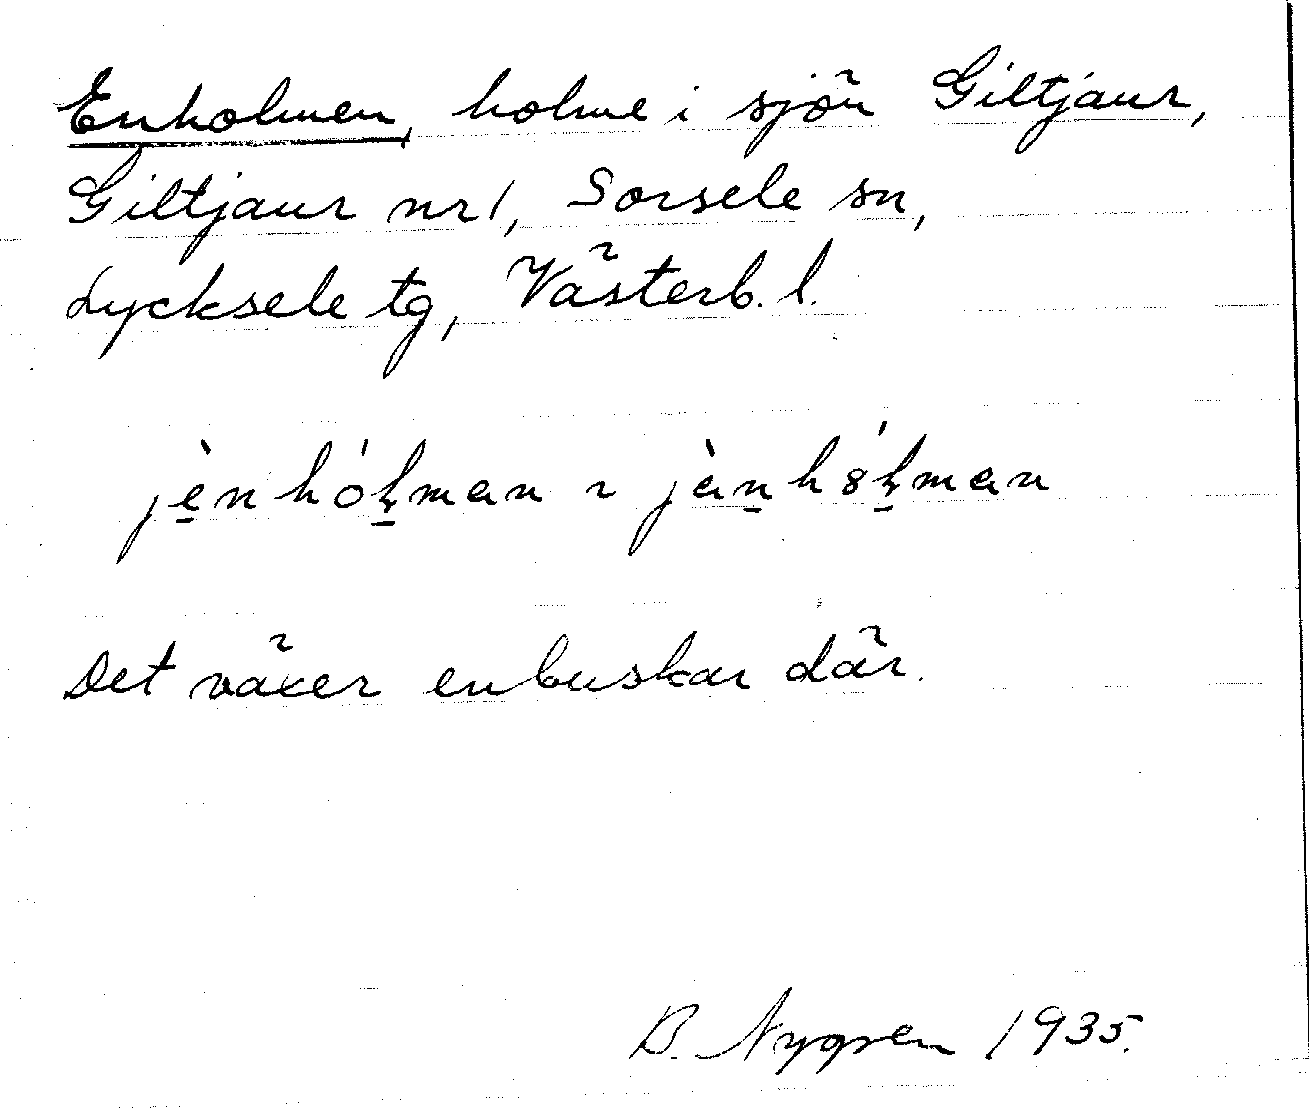 Enholmen, holme i sjön Giltjaur,
Giltjaur nr 1, Sorsele sn,
Lycksele tg, Västerb. l.
jè̱nhóḻman ~ jàṉhóḻman
Det växer enbuskar där.
B. Nygren 1935.